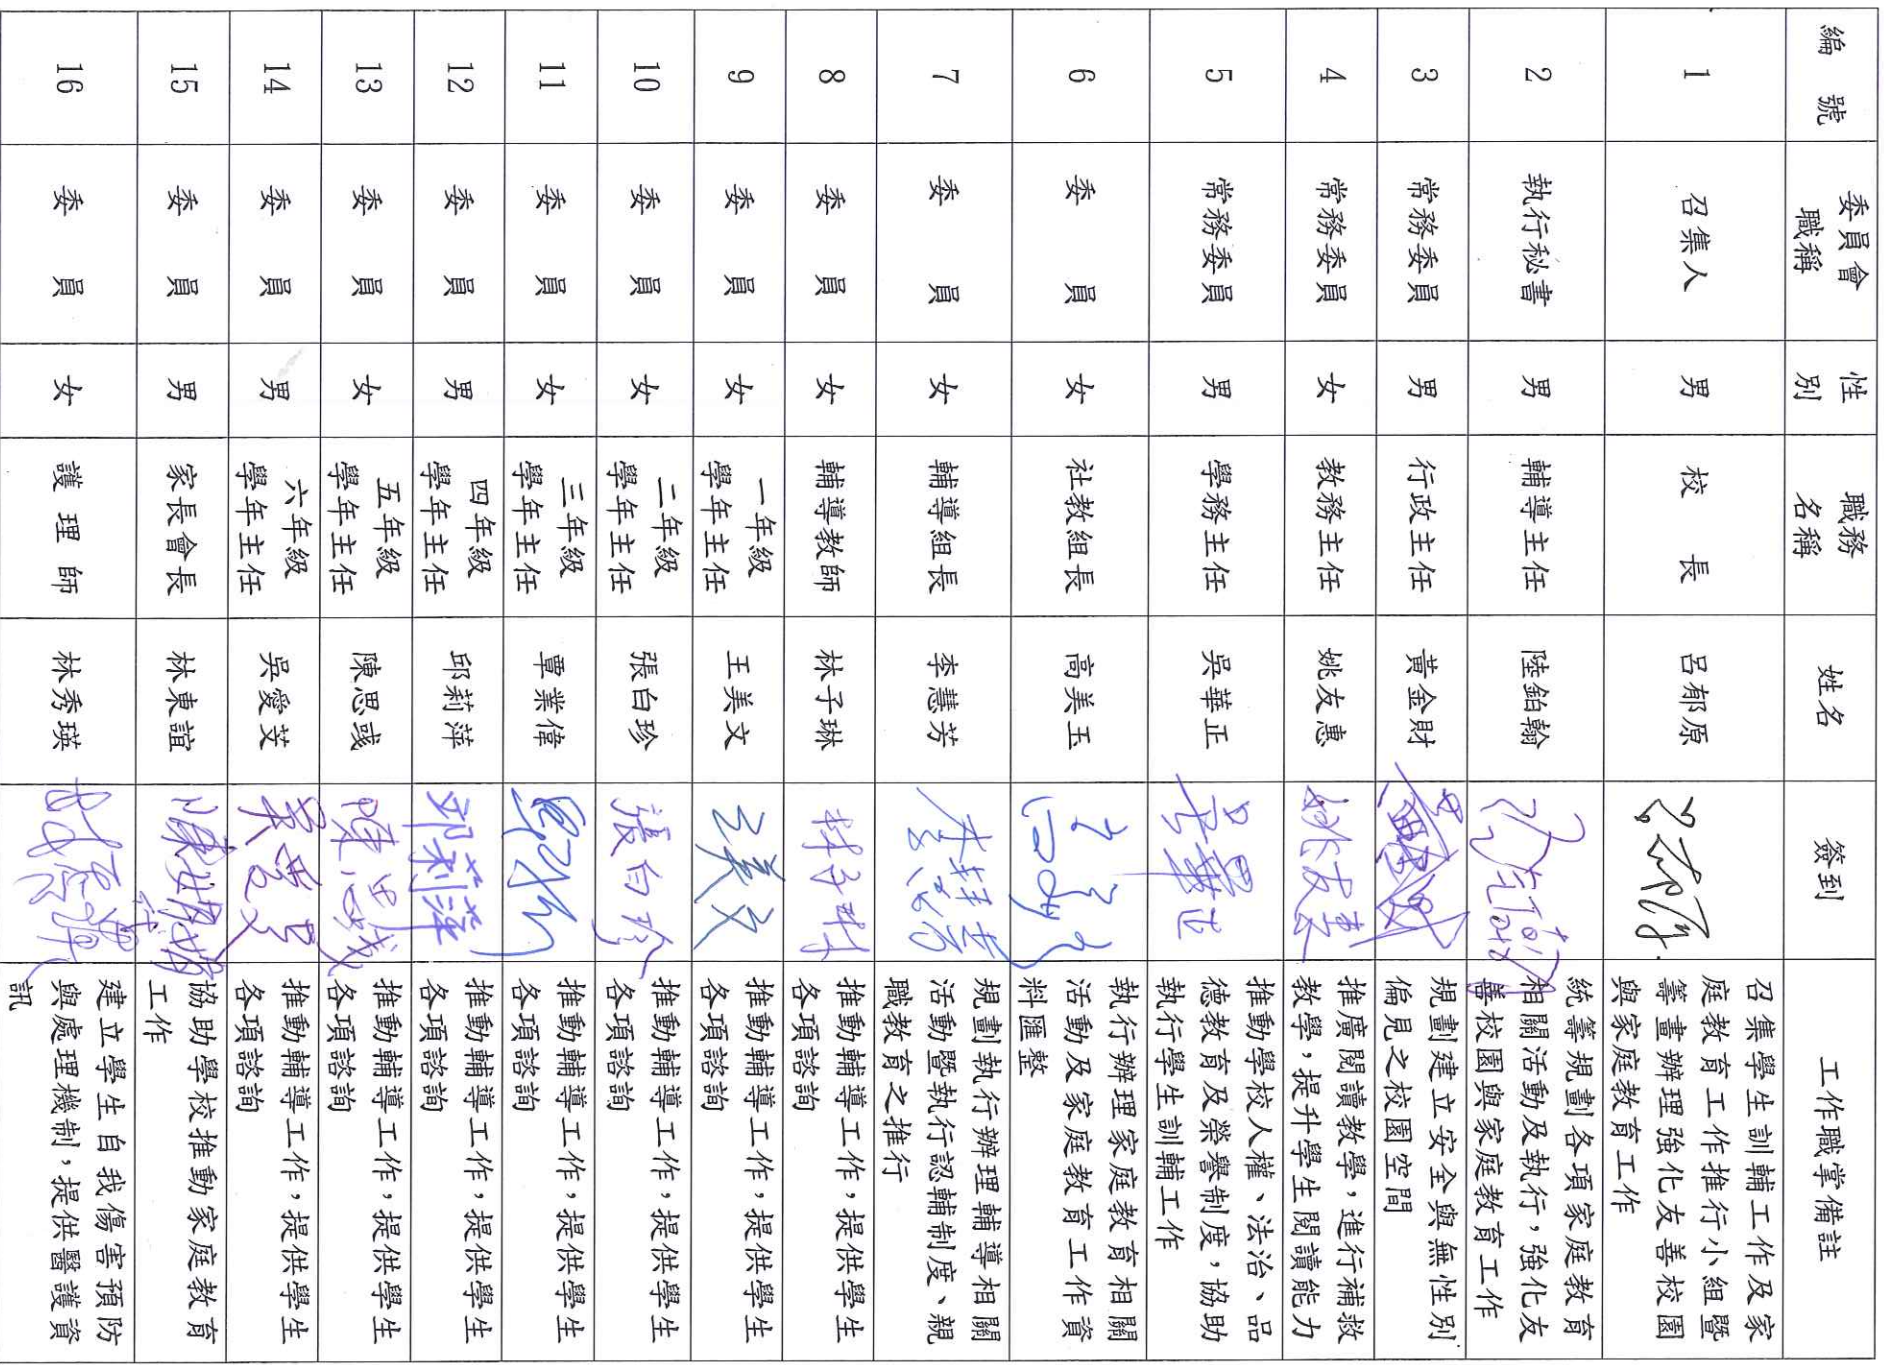 編號 委員會職稱 性別 職務名稱 姓名 簽到 工作職掌備註
1 召集人 男 校長 呂郁原
召集學生訓輔工作及家
庭教育工作推行小組暨
籌畫辦理強化友善校園
與家庭教育工作
2 執行秘書 男 輔導主任 陸鉑翰
統籌規劃各項家庭教育
相關活動及執行,強化友
善校園與家庭教育工作
3 常務委員 男 行政主任 黃金財
規劃建立安全與無性別
偏見之校園空間
4 常務委員 女 教務主任 姚友惠
推廣閱讀教學,進行補救
教學,提升學生閱讀能力
5 常務委員 男 學務主任 吳華正
推動學校人權、法治、品
德教育及榮譽制度,協助
執行學生訓輔工作
6 委員 女 社教組長 高美玉
執行辦理家庭教育相關
活動及家庭教育工作資
料匯整
7 委員 女 輔導組長 李慧芳
規劃執行辦理輔導相關
活動暨執行認輔制度、親
職教育之推行
8 委員 女 輔導教師 林子琳 林子琳
推動輔導工作,提供學生
各項諮詢
9 委員 女 一年級學年主任 王美文 王美文
推動輔導工作,提供學生
各項諮詢
10 委員 女 二年級學年主任 張白珍 張白珍
推動輔導工作,提供學生
各項諮詢
11 委員 女 三年級學年主任 覃業偉
推動輔導工作,提供學生
各項諮詢
12 委員 男 四年級學年主任 邱莉萍 邱莉萍
推動輔導工作,提供學生
各項諮詢
13 委員 女 五年級學年主任 陳思彧
推動輔導工作,提供學生
各項諮詢
14 委員 男 六年級學年主任 吳愛芠
推動輔導工作,提供學生
各項諮詢
15 委員 男 家長會長 林東誼
協助學校推動家庭教育
工作
16 委員 女 護理師 林秀瑛
建立學生自我傷害預防
與處理機制,提供醫護資
訊